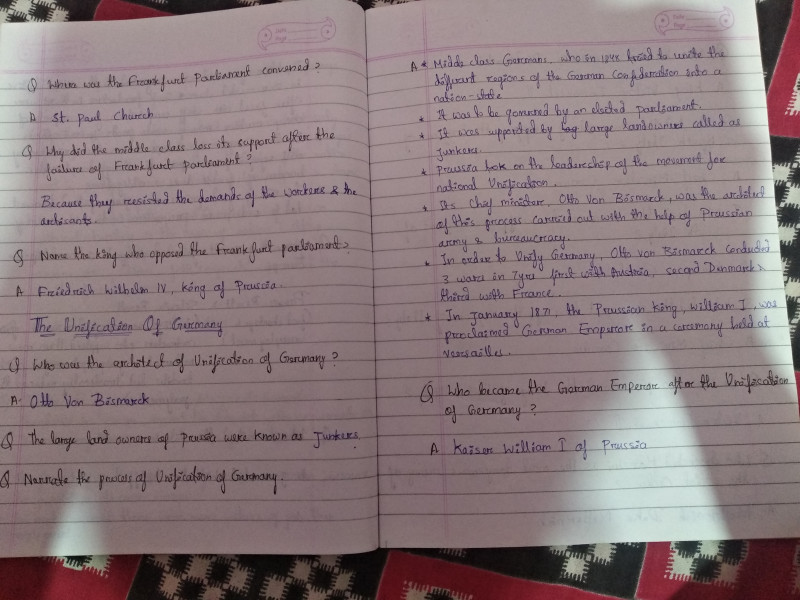 Q Where was the Frankfurt Parliament convened?
A St. Paul Church
Q Why did the middle class loss its support after the
failure of Frankfurt parliament?
Because they resisted the demands of the workers & the
artisants.
Q Name the king who opposed the Frankfurt parliament?
A Freiedrich Wilhelm IV, king of Prussia.
The Unification Of Germany
Q Who was the architect of Unification of Germany?
A. Otto Von Bismarck
Q The large land owners of Prussia were known as Junkers.
Q Narrate the process of Unification of Germany.
A * Middle class Germans, who in 1848 tried to unite the
different regions of the German Confederation into a
nation-state
* It was to be governed by an elected parliament.
* It was supported by large landowners called as
Junkers.
* Prussia took on the leadership of the movement for
national Unification.
* Its chief minister, Otto Von Bismarck, was the architect
of this process carried out with the help of Prussian
army & bureaucracy.
* In order to Unify Germany, Otto von Bismarck conducted
3 wars in 7yrs first with Austria, second Denmark &
third with France.
* In January 1871, the Prussian king, William I, was
proclaimed German Emperor in a ceremony held at
Versailles.
Q Who became the German Emperor after the Unification
of Germany?
A Kaiser William I of Prussia